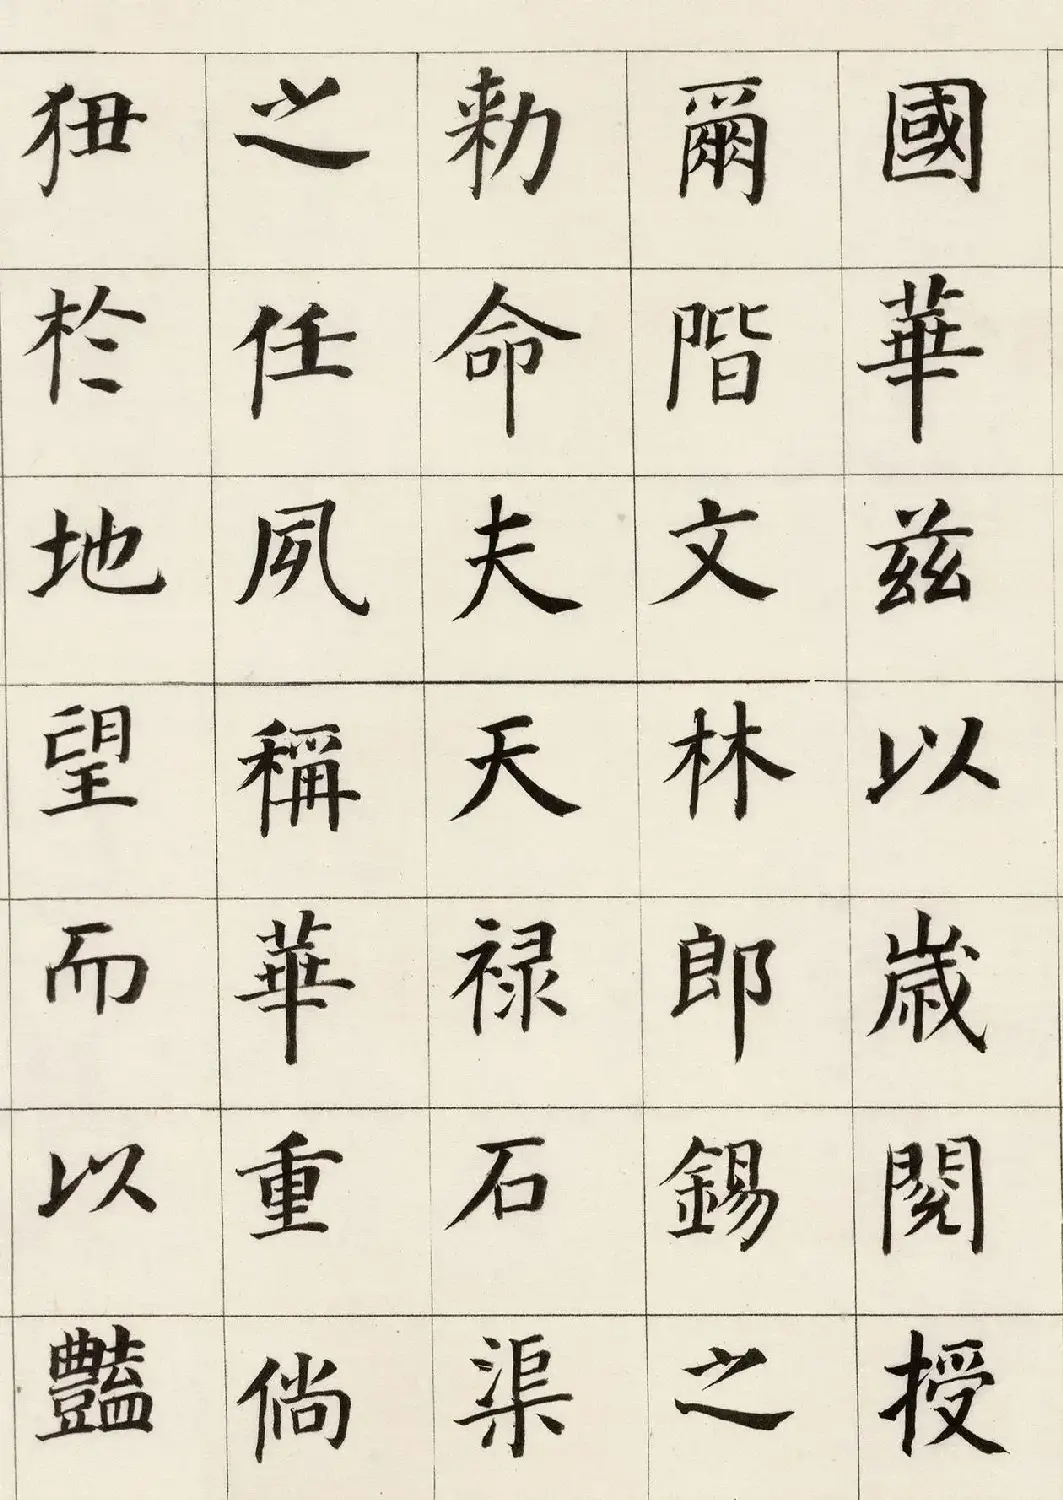 國華兹以歲閱授
爾階文林郎錫之
勑命夫天禄石渠
之任夙稱華重倘
狃於地望而以豔